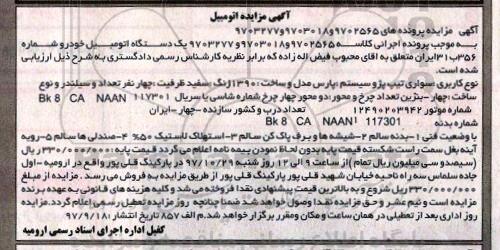 آگهی مزایده اتومبیل
آگهی مزایده پرونده های ۹۷۰۲۵۶۵و۹۷۰۳۰۱۸و۹۷۰۳۲۷۷
به موجب پرونده اجرائی کلاسه ۹۷۰۲۵۶۵و۹۷۰۳۰۱۸و۹۷۰۳۲۷۷ یک دستگاه اتومبیل خودرو شماره
۳۵۶ب۳۱ ایران متعلق به اقای محبوب فیض اله زاده که برابر نظریه کارشناس رسمی دادگستری به شرح ذیل ارزیابی
شده است.
نوع کاربری :سواری تیپ پژو سیستم :پارس مدل و ساخت:۱۳۹۰رنگ :سفید ظرفیت :چهار نفر تعداد و سیلندر و نوع
ساخت:چهار-بنزین تعداد چرخ و محور:دو محور چهار چرخ شماره شاسی یا سریال Bk 8 CA NAAN 117301
شماره موتور ۱۲۴۹۰۲۰۳۹۴۲ تعداد درب و کشور سازنده -چهار-ایران
شماره بدنه Bk 8 CA NAAN 117301
با وضعیت فنی ۱-بدنه سالم ۲-شیشه ها و برف پاک کن سالم ۳-استهلاک لاستیک ۵۰% ۴-صندلی ها سالم ۵-رویه
آینه بغل سمت راست شکسته قیمت پایه بدون لحاظ نمودن بیمه نامه اعلام می گردد قیمت پایه :۳۳۰/۰۰۰/۰۰۰ ریال
(سیصدو سی میلیون ریال تمام) از ساعت ۹ الی ۱۲ روز شنبه ۹۷/۱۰/۲۹ در پارکینگ قلی پور واقع در ارومیه -اول
جاده سلماس سه راه ناحیه خیابان شهید قلی پور پارکینگ قلی پور از طریق مزایده به فروش می رسد . مزایده از مبلغ
۳۳۰/۰۰۰/۰۰۰ ریال شروع و به بالاترین قیمت پیشنهادی نقدا فروخته می شد و کلیه هزینه های قانونی به عهده برنده
مزایده است و نیم عشر و حق مزایده نقدا وصول خواهد شد ضمنا چنانچه روز مزایده تعطیل رسمی اعلام گردد.مزایده
روز اداری بعد از تعطیلی در همان ساعت و مکان ومقرر برگزار خواهد شد.م الف ۸۵۷ تاریخ انتشار :۹۷/۹/۱۸
کفیل اداره اجرای اسناد رسمی ارومیه